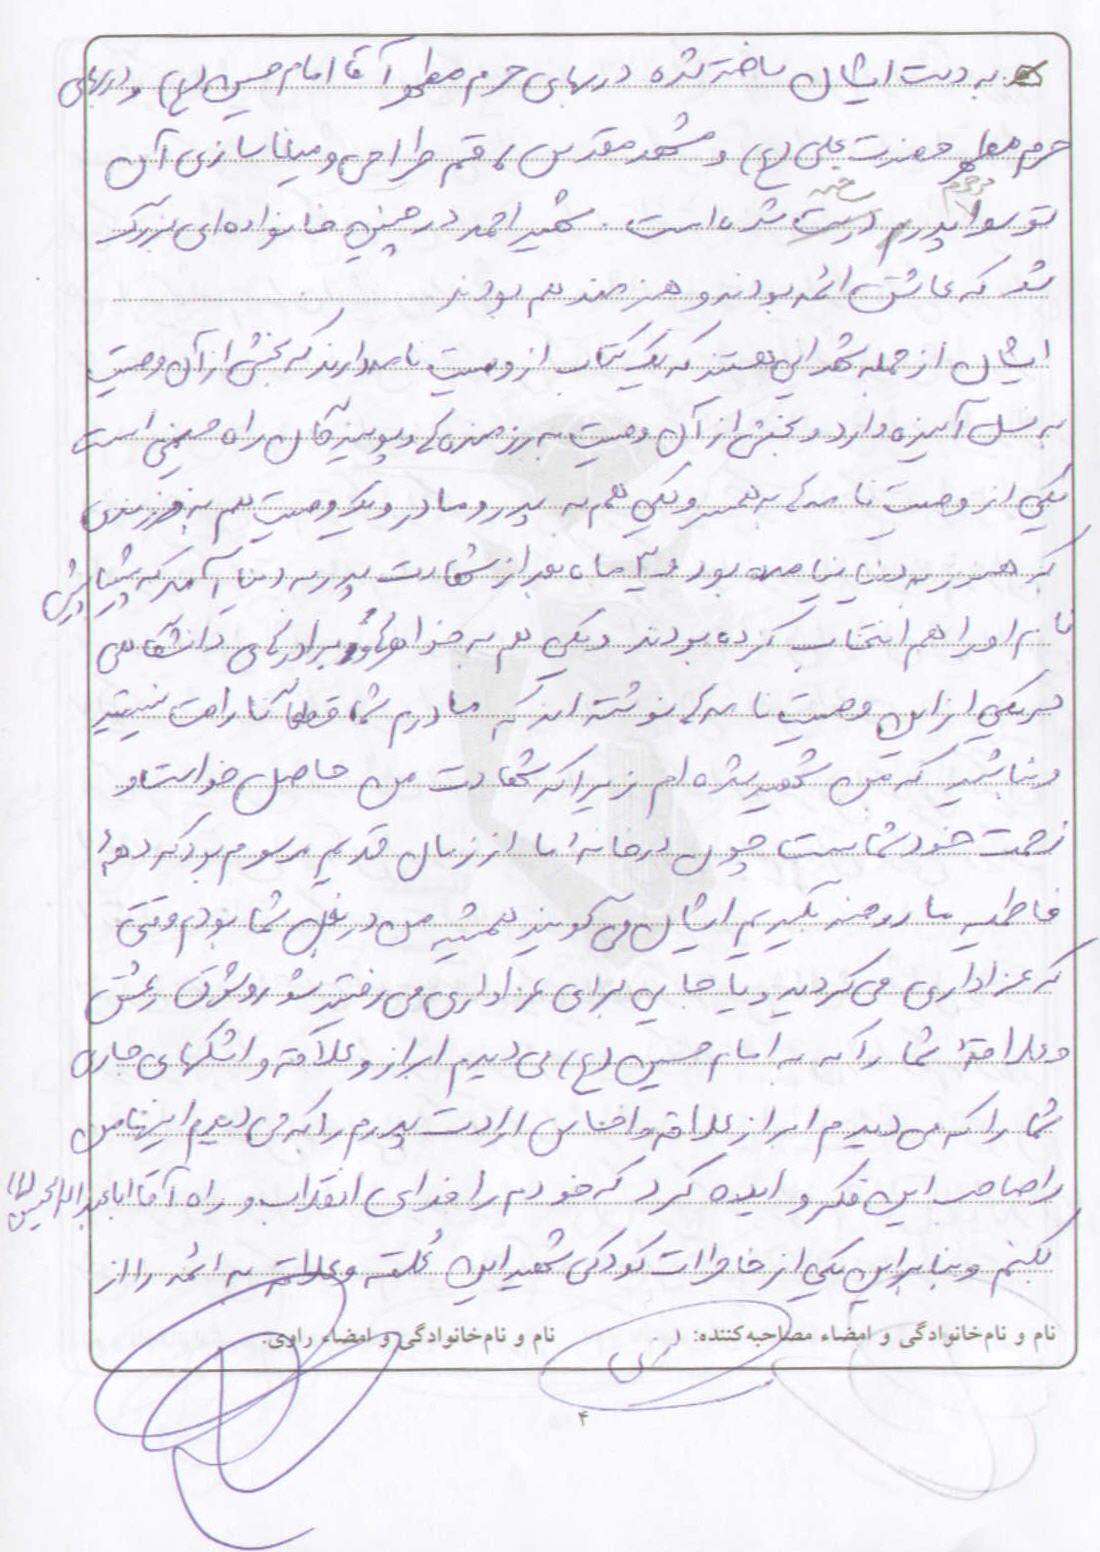 به دست ایشان ساخته شده دربهای حرم مطهر آقا امام حسین (ع) و دربهای
حرم مطهر حضرت علی (ع) و مشهد مقدس، قم طراحی و میناسازی آن
توسط مرحوم پدرم درست شده است. شهید احمد در چنین خانواده‌ای بزرگ
شد که عاشق ائمه بودند و هنرمند هم بودند
ایشان از جمله شهدایی هستند که یک کتاب از وصیت نامه دارند که بخشی از آن وصیت
به نسل آینده دارد و بخشی از آن وصیت به رزمنده‌ها و پویندگان راه حسینی است
یکی از وصیت نامه‌ها به همسر و یکی هم به پدر و مادر و یک وصیت هم به فرزندی
که هنوز به دنیا نیامده بود و ۳ ماه بعد از شهادت پدر به دنیا آمد که پیشاپیش
نام او را هم انتخاب کرده بودند و یکی هم به خواهرها و برادرهای دانشگاهی
در یکی از این وصیت نامه‌ها نوشته اند که مادرم شما قطعاً ناراحت نیستید
و نباشید که من شهید شده ام زیرا که شهادت من حاصل خواست و
زحمت خود شماست چون در خانهٔ ما از زمان قدیم مرسوم بود که دههٔ
فاطمیه ما روضه بگیریم ایشان می‌گویند همیشه من در بغل شما بودم وقتی
که عزاداری می‌کردید و یا جایی برای عزاداری می‌رفتید شور و شوق و عشق
و علاقهٔ شما را که به امام حسین (ع) می‌دیدم ابراز و علاقه و اشکهای جاری
شما را که می‌دیدم ابراز علاقه و اخلاص ارادت پدرم را که می‌دیدم اینها من
را صاحب این فکر و ایده کرد که خودم را فدای انقلاب و راه آقا اباعبدالله الحسین (ع)
بکنم و بنابراین یکی از خاطرات کودکی شهید این عُلقه و علاقه به ائمه را از
نام و نام‌خانوادگی و امضاء مصاحبه‌کننده:
نام و نام‌خانوادگی و امضاء راوی:
۴